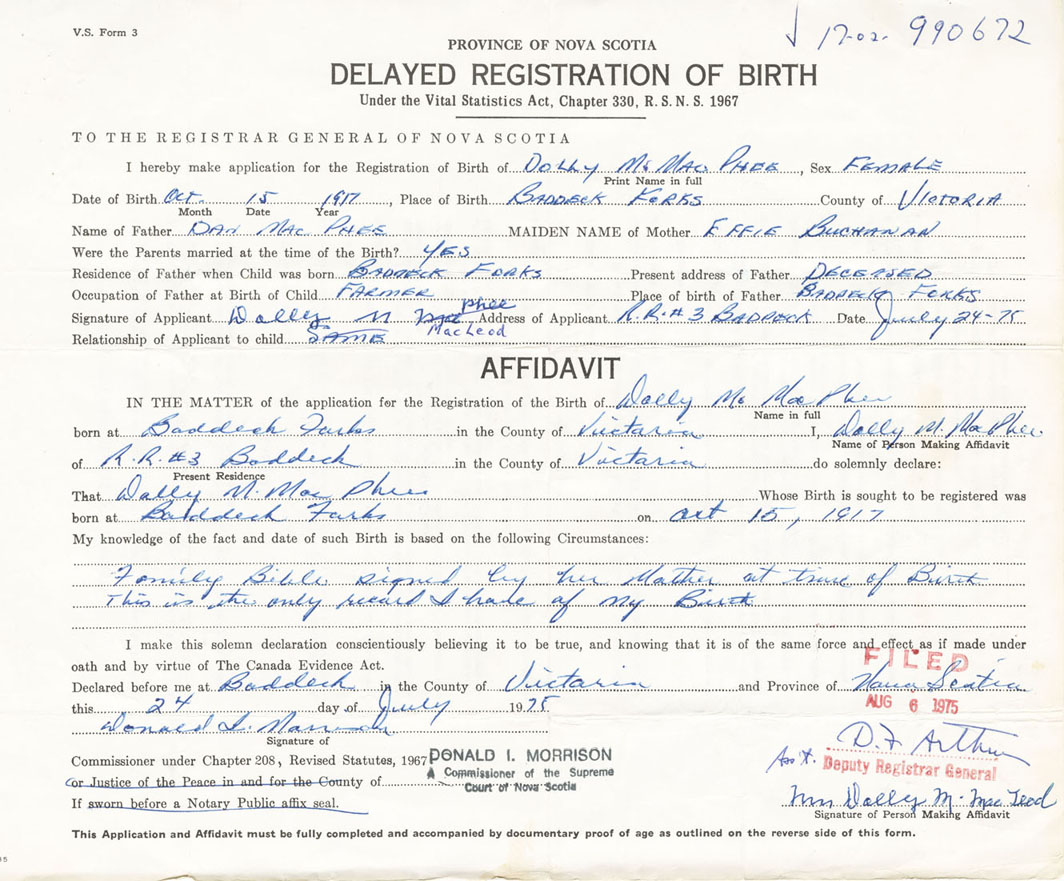 V.S. Form 3
17-02- 990672
PROVINCE OF NOVA SCOTIA
DELAYED REGISTRATION OF BIRTH
Under the Vital Statistics Act, Chapter 330, R. S. N. S. 1967
TO THE REGISTRAR GENERAL OF NOVA SCOTIA
I hereby make application for the Registration of Birth of Dolly M. MacPhee, Sex Female
Print Name in full
Date of Birth Oct. 15 1917, Place of Birth Baddeck Forks County of Victoria
Month Date Year
Name of Father Dan MacPhee MAIDEN NAME of Mother Effie Buchanan
Were the Parents married at the time of the Birth? Yes
Residence of Father when Child was born Baddeck Forks Present address of Father Deceased
Occupation of Father at Birth of Child Farmer Place of birth of Father Baddeck Forks
Signature of Applicant Dolly M Mac Phee MacLeod Address of Applicant R.R.#3 Baddeck Date July 24-75
Relationship of Applicant to child Same
AFFIDAVIT
IN THE MATTER of the application for the Registration of the Birth of Dolly M. MacPhee
Name in full
born at Baddeck Forks in the County of Victoria I, Dolly M. MacPhee
Name of Person Making Affidavit
of R.R. #3 Baddeck in the County of Victoria do solemnly declare:
Present Residence
That Dolly M. MacPhee Whose Birth is sought to be registered was
born at Baddeck Forks on Oct 15, 1917
My knowledge of the fact and date of such Birth is based on the following Circumstances:
Family Bible signed by her Mother at time of Birth
This is the only record I have of My Birth
I make this solemn declaration conscientiously believing it to be true, and knowing that it is of the same force and effect as if made under
oath and by virtue of The Canada Evidence Act.
FILED
Declared before me at Baddeck in the County of Victoria and Province of Nova Scotia
this 24 day of July 1975
AUG 6 1975
Donald I. Morrison
Signature of
D.F. Arthur
Commissioner under Chapter 208, Revised Statutes, 1967
DONALD I. MORRISON
A Commissioner of the Supreme
Court of Nova Scotia
Ass't. Deputy Registrar General
or Justice of the Peace in and for the County of
If sworn before a Notary Public affix seal.
Mrs Dolly M. MacLeod
Signature of Person Making Affidavit
This Application and Affidavit must be fully completed and accompanied by documentary proof of age as outlined on the reverse side of this form.